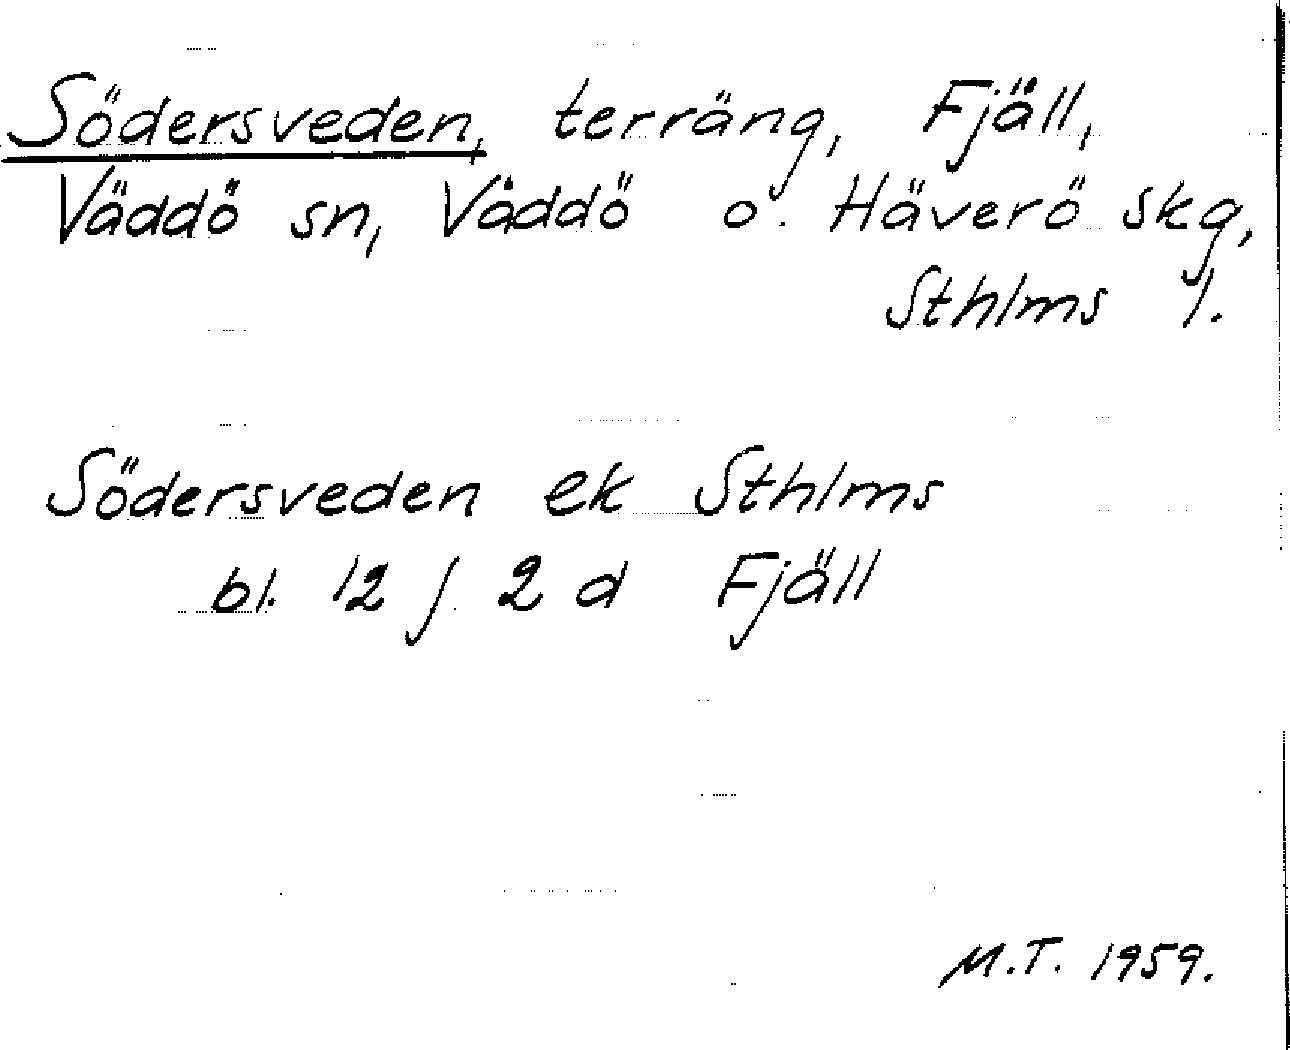 Södersveden, terräng, Fjäll,
Väddö sn, Väddö o. Häverö skg,
Sthlms l.
Södersveden ek Sthlms
bl. 12 j 2 d Fjäll
M.T. 1959.